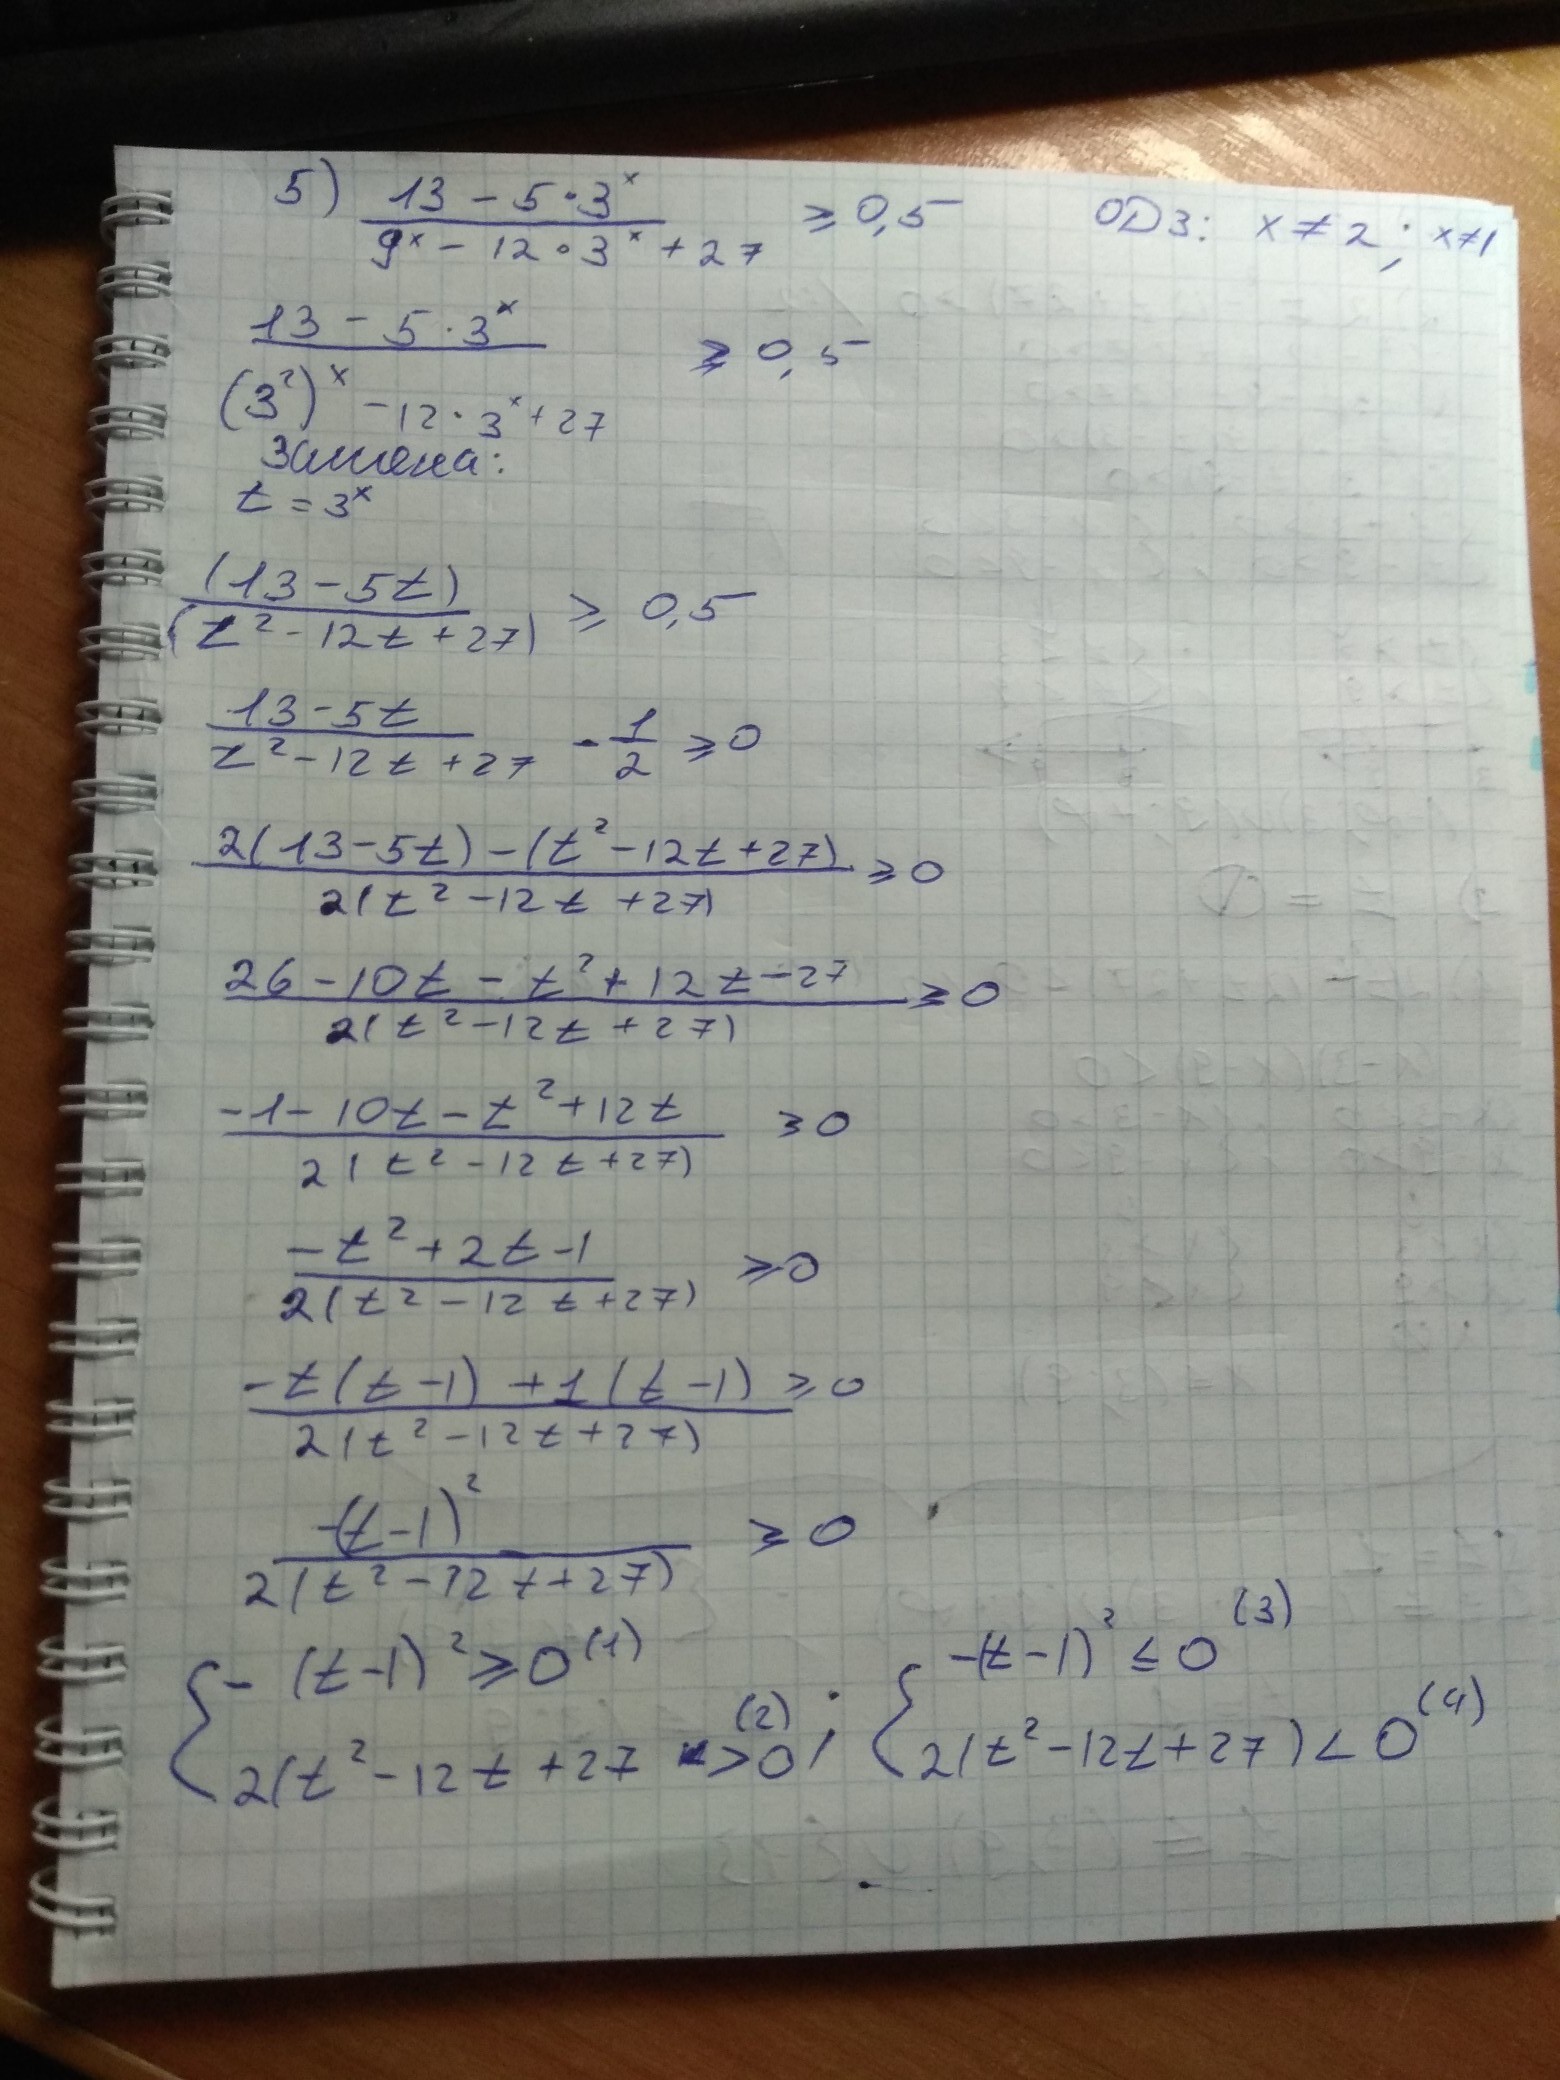 5) (13 - 5·3^x)/(9^x - 12·3^x + 27) ≥ 0,5 ОДЗ: x ≠ 2; x≠1
(13 - 5·3^x)/((3²)^x - 12·3^x + 27) ≥ 0,5
Замена:
t = 3^x
(13 - 5t)/(t² - 12t + 27) ≥ 0,5
(13 - 5t)/(t² - 12t + 27) - 1/2 ≥ 0
(2(13 - 5t) - (t² - 12t + 27))/(2(t² - 12t + 27)) ≥ 0
(26 - 10t - t² + 12t - 27)/(2(t² - 12t + 27)) ≥ 0
(-1 - 10t - t² + 12t)/(2(t² - 12t + 27)) ≥ 0
(-t² + 2t - 1)/(2(t² - 12t + 27)) ≥ 0
(-t(t - 1) + 1(t - 1))/(2(t² - 12t + 27)) ≥ 0
(-(t - 1)²)/(2(t² - 12t + 27)) ≥ 0
{ -(t - 1)² ≥ 0 (1) { -(t - 1)² ≤ 0 (3)
2(t² - 12t + 27 > 0 (2) ; 2(t² - 12t + 27) < 0 (4)